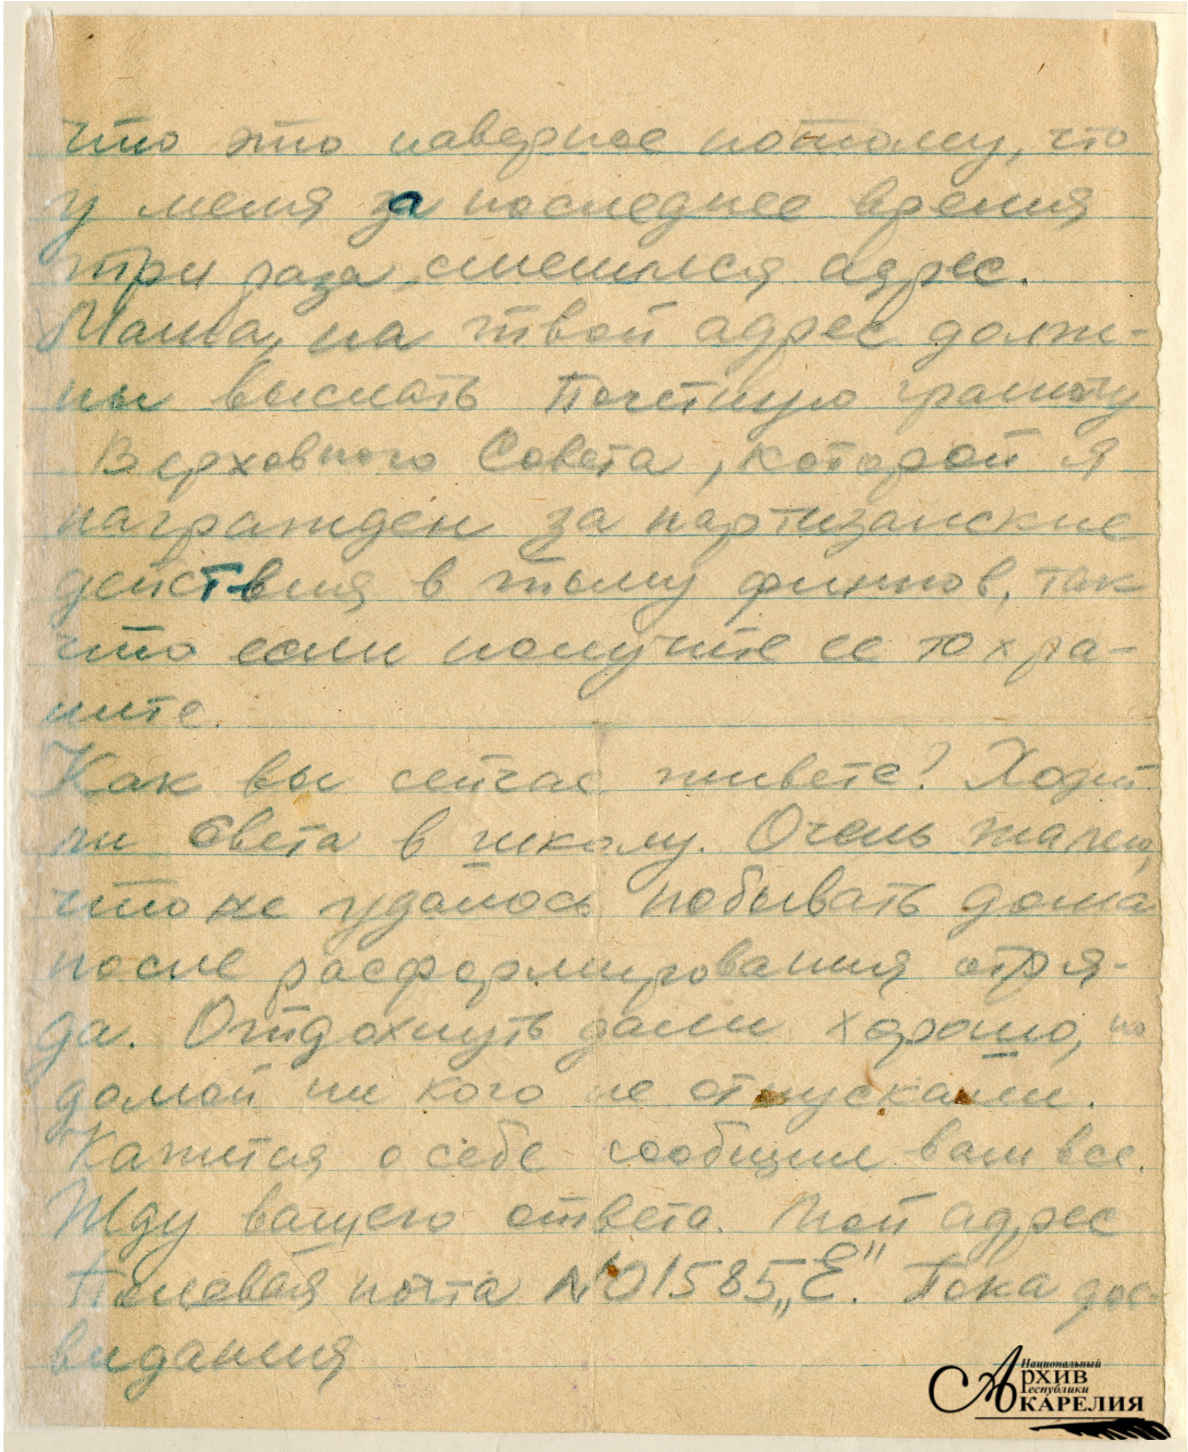 что это наверное потому, что
у меня за последнее время
три раза сменился адрес.
Мама, на твой адрес долж-
ны выслать Почетную грамоту
Верховного Совета, которой я
награжден за партизанские
действия в тылу финнов, так
что если получите ее то хра-
ните.
Как вы сейчас живете? Ходит
ли Света в школу. Очень жалко,
что не удалось побывать дома
после расформирования отря-
да. Отдохнуть дали хорошо, но
домой ни кого не отпускали.
Кажится о себе сообщил вам все.
Жду вашего ответа. Мой адрес
Полевая почта №01585„Е". Пока дос-
видания
Национальный
АРХИВ
Республики
КАРЕЛИЯ